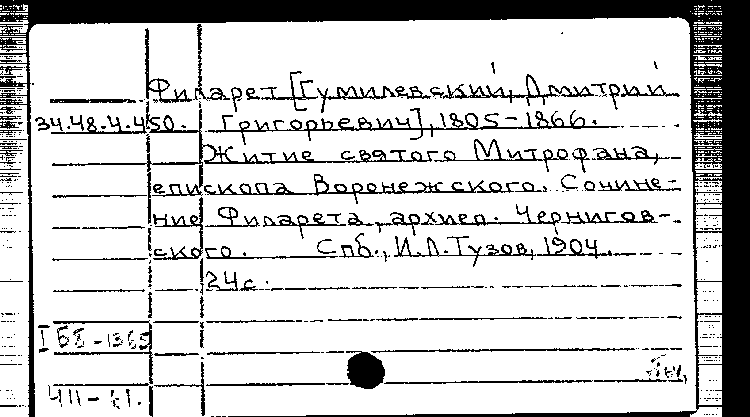 Филарет [Гумилевский, Дмитрий
34.48.4.450. Григорьевич], 1805-1866.
Житие святого Митрофана,
епископа Воронежского. Сочине-
ние Филарета, архиеп. Чернигов-
ского. Спб., И.Л.Тузов, 1904.
24с.